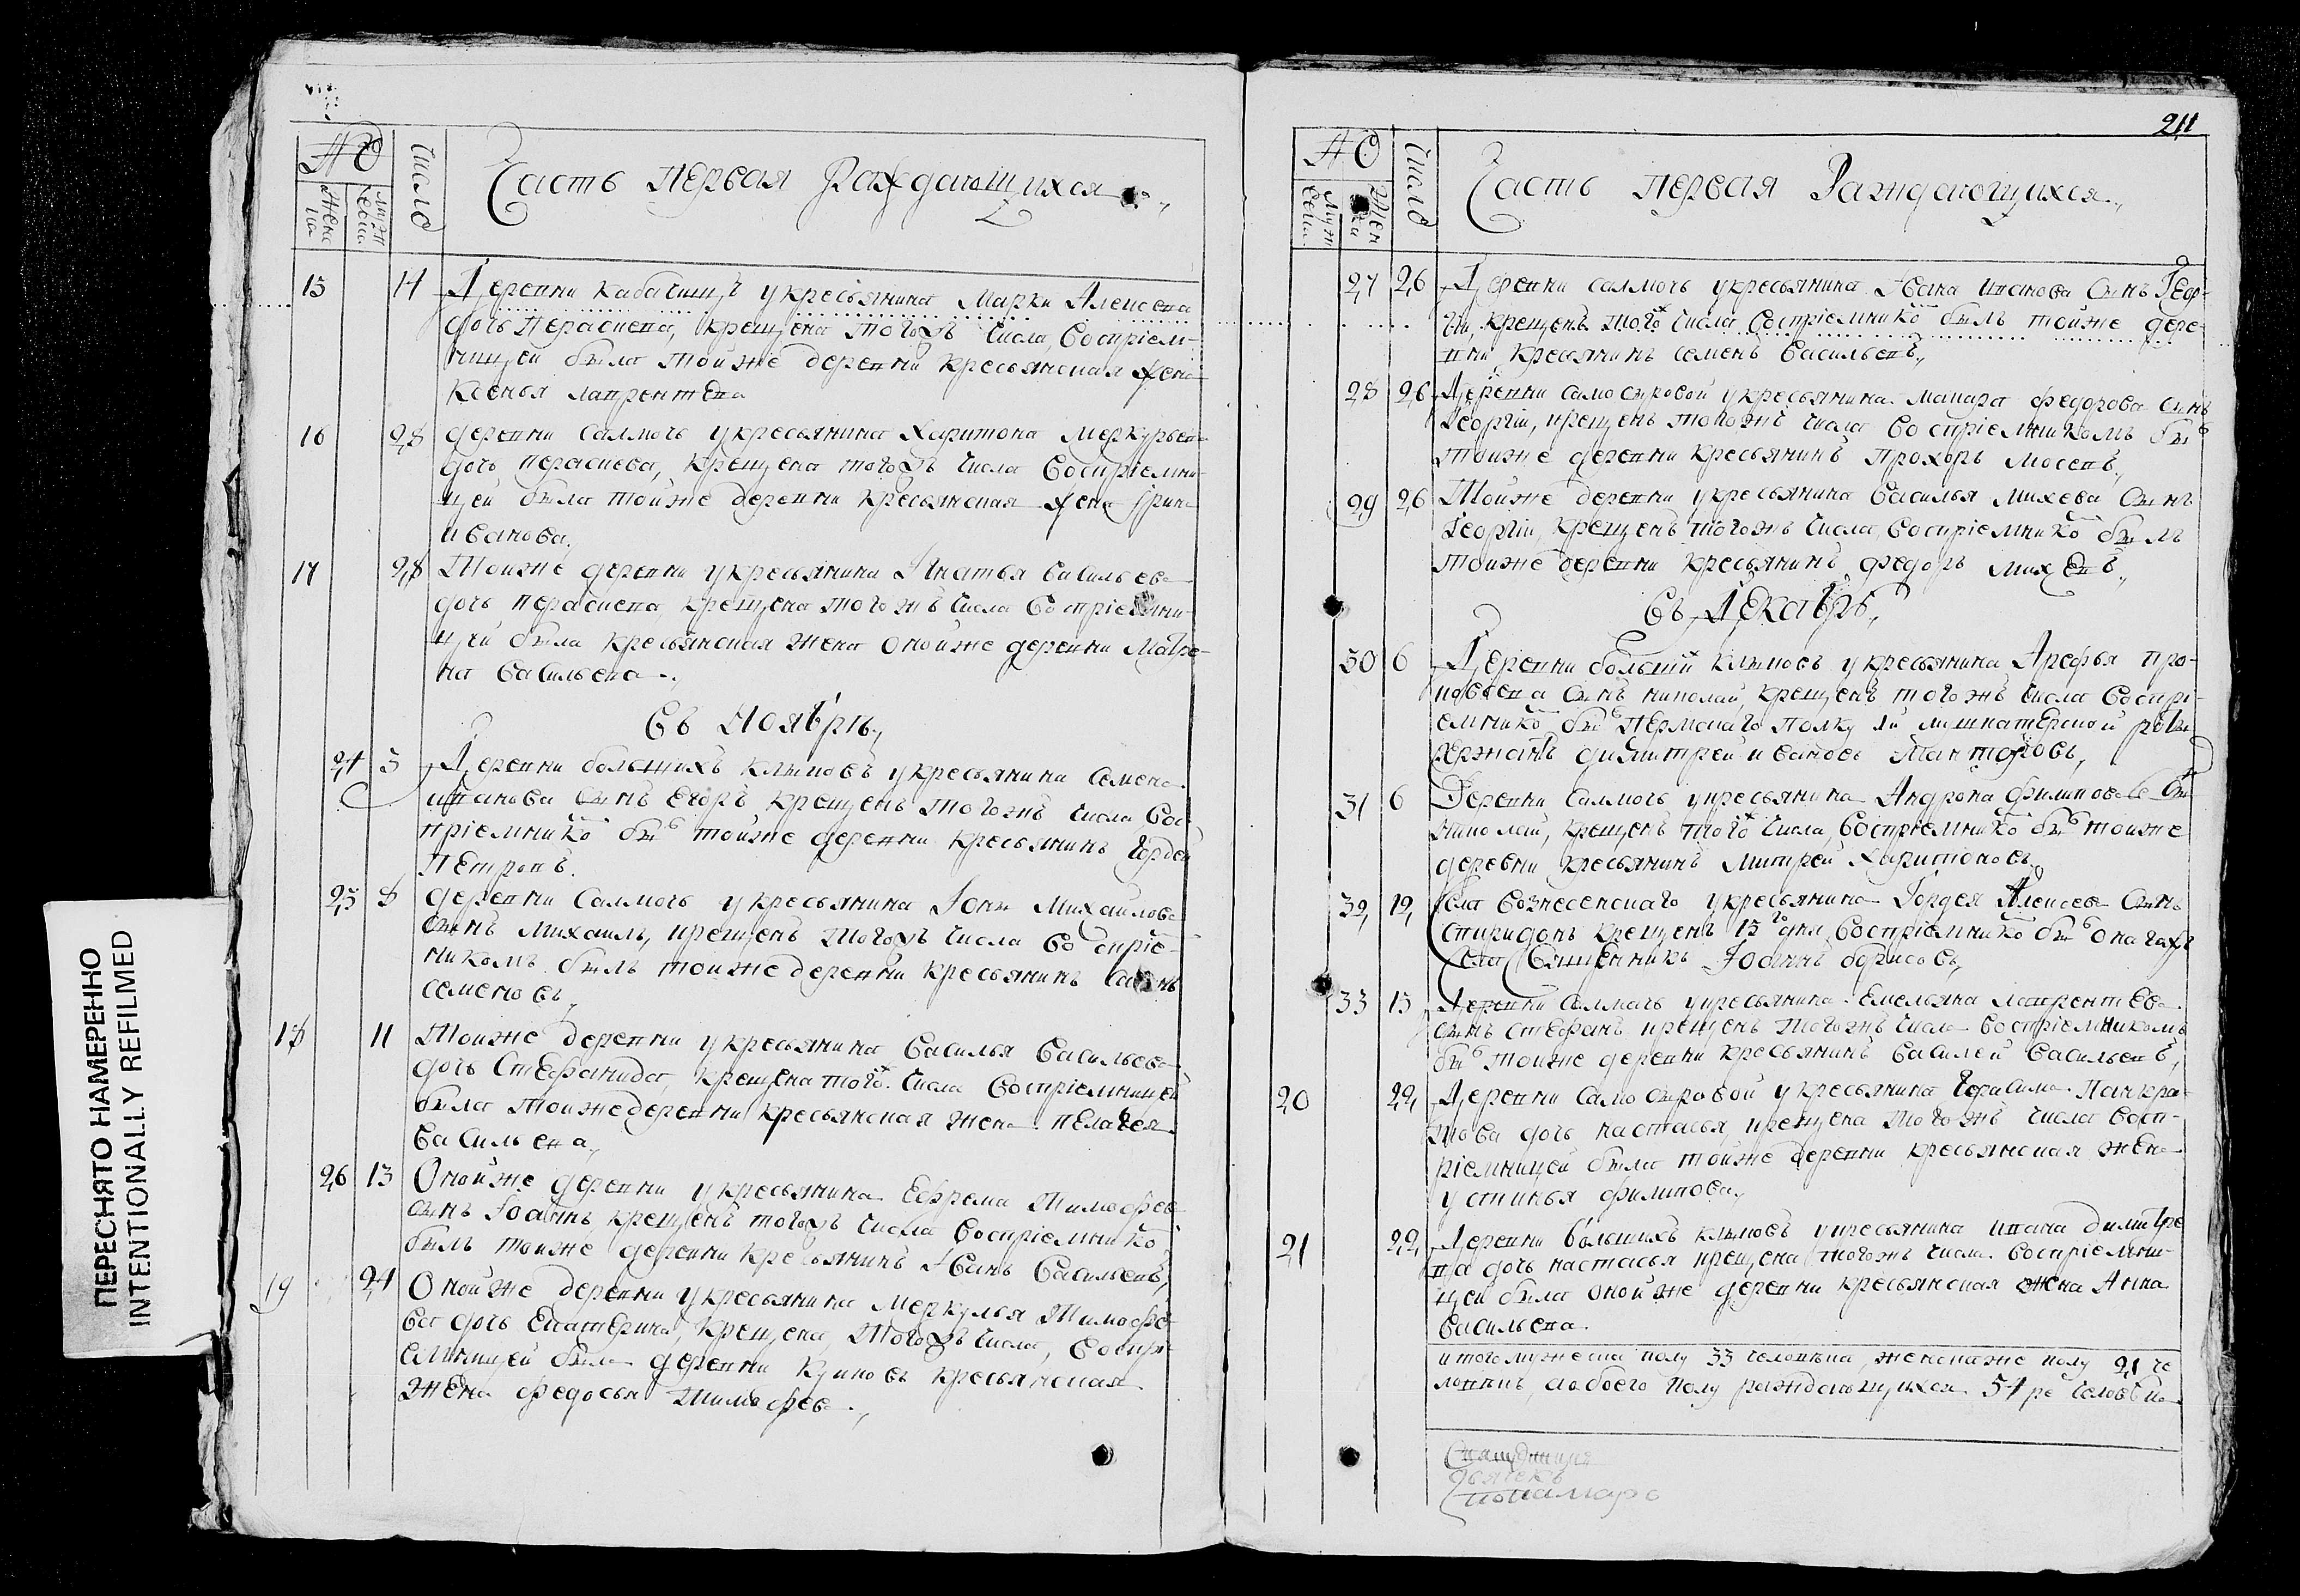 №
Женска
Мужеска
Число
Часть первая Раждающихся
15 14 Деревни Кабачищъ укресьянина Марки Алексева
дочь Параскева, крещена тогожъ числа, Воспріем-
ницей была тойже деревни кресьянская жена
Ксенья Лаврентева
16 28 деревни Салмочь укресьянина Харитона Меркурьев
дочь Параскева, крещена тогожъ числа Воспріемни-
цей была тойже деревни кресьянская жена Ірина
Иванова.
17 28 Тойже деревни укресьянина Игнатья Васильева
дочь Параскева, крещена тогожъ числа Воспріемни-
цей была кресьянская жена оной же деревни Матре-
на Васильева.,
Въ Ноябрѣ.,
24 3 Деревни большихъ Климовъ укресьянина Семена
Иванова сынъ Егоръ крещенъ тогожъ числа Вос-
пріемнико бы тойже деревни кресьянинъ Гордей
Петровъ.
25 8 деревни Салмочь укресьянина Іоны Михайлова
сынъ Михаилъ, крещенъ тогожъ числа Воспріе-
микомъ былъ тойже деревни кресьянинъ
Семеновъ,
18 11 Тойже деревни укресьянина Василья Васильева
дочь Стефанида, крещена того ж числа Воспріемницей
была тойже деревни кресьянская жена Пелагея
Васильева,
26 13 Оной же деревни укресьянина Ефрема Тимофеева
сынъ Іоаннъ, крещенъ тогожъ числа Воспріемнико
былъ тойже деревни кресьянинъ Иванъ Васильевъ,
19 24 Оной же деревни укресьянина Меркулья Тимофе-
ва дочь Екатерина, крещена, тогожъ числа, Воспрі-
емницей была деревни кресьянская
жена Федосья Тимофева.,
211
№
Мужеска
Женска
Число
Часть первая Раждающихся.,
27 26 Деревни Салмочь укресьянина Ивана Иванова сынъ Геор-
гій, крещенъ того ж числа Воспріемнико былъ тойже дере-
вни кресьянинъ Семенъ Васильевъ,
28 26 Деревни Самосыровой укресьянина Макара Федорова сынъ
Георгій, крещенъ тогожъ числа Воспріемникомъ бы
тойже деревни кресьянинъ Прохоръ Мосевъ,
29 26 Тойже деревни укресьянина Василья Михева сынъ
Георгій, крещенъ тогожъ числа, Воспріемнико былъ
тойже деревни кресьянинъ Федоръ Михевъ.,
Въ Декабрѣ,
30 6 Деревни больши Климовъ укресьянина Арефья Про-
кофьева сынъ Николай, крещенъ тогожъ числа Воспрі-
емнико бы Пермскаго полку роты
Сержантъ Димитрей Ивановъ
31 6 Деревни Салмочь укресьянина Андрона Филипова сы
Николай, крещенъ того ж числа, Воспріемнико бы тойже
деревни кресьянинъ Митрей Харитоновъ
32 12 Села Вознесенскаго укресьянина Гордея Алексева сынъ
Спиридонъ крещенъ 13го дня, Воспріемнико бы онагожъ
села Священникъ Іоаннъ Борисовъ,
33 15 Деревни Салмочь укресьянина Емельяна Лаврентева
сынъ Стефанъ крещенъ тогожъ числа Воспріемникомъ
бы тойже деревни кресьянинъ Василей Васильевъ,
20 22 Деревни Самосыровой укресьянина Герасима Панкра-
това дочь Настасья, крещена тогожъ числа Восп-
ріемницей была тойже деревни кресьянская жена
Устинья Филипова,
21 22 Деревни большихъ Климовъ укресьянина Ивана Димитре
ва дочь Настасья крещена тогожъ числа Воспріемни-
цей была оной же деревни кресьянская жена Анна
Васильева.
итого мужеска полу 33 человѣка, женска же полу 21 че
ловекъ, а обоего полу раждающихся 54ре человѣка
дьячекъ
пономарь
ПЕРЕСНЯТО НАМЕРЕННО
INTENTIONALLY REFILMED